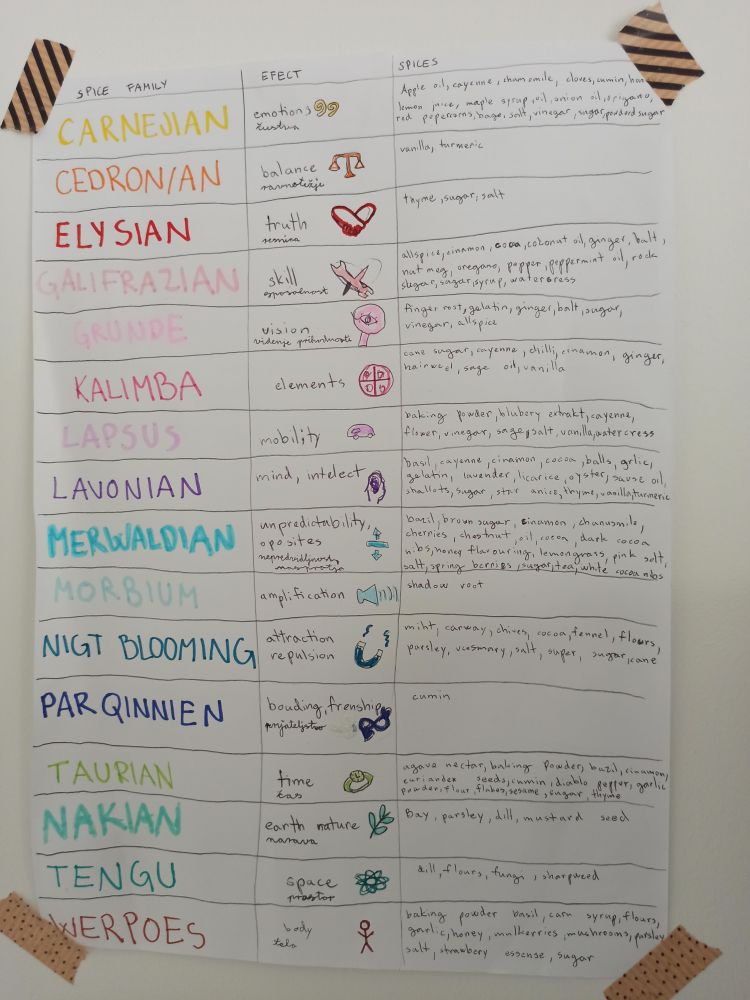 SPICE FAMILY
EFECT
SPICES
CARNEJIAN
emotions
čustva
Apple oil, cayenne, chamomile, cloves, cumin,
lemon juice, maple syrup, oil, onion oil, origano,
red pepercorns, sage, salt, vinegar, sugar, powderd sugar
CEDRONIAN
balance
ravnotežje
vanilla, turmeric
ELYSIAN
truth
resnica
thyme, sugar, salt
GALIFRAZIAN
skill
sposobnost
allspice, cinnamon, cocoa, cokonut oil, ginger, balt,
nut meg, oregano, papper, peppermint oil, rock
sugar, sugar, syrup, watercress
GRUNDE
vision
videnje prihodnosti
finger rost, gelatin, ginger, balt, sugar,
vinegar, allspice
KALIMBA
elements
cane sugar, cayenne, chilli, cinamon, ginger,
sage oil, vanilla
LAPSUS
mobility
baking powder, blubery extrakt, cayenne,
flower, vinegar, sage, salt, vanilla, watercress
LAVONIAN
mind, intelect
basil, cayenne, cinamon, cocoa, balls, grlic,
gelatin, lavender, licorice, oyster, sause oil,
shallots, sugar, star anice, thyme, vanilla, turmeric
MERWALDIAN
unpredictability,
oposites
bazil, brown sugar, cinamon, chamusmile,
cherries, chestnut, oil, cocoa, dark cocoa
nibs, honey flavouring, lemongrass, pink salt,
salt, spring berries, sugar, tea, white cocoa nibs
MORBIUM
amplification
shadow root
NIGT BLOOMING
attraction
repulsion
miht, carway, chives, cocoa, fennel, flours,
parsley, salt, super, sugar, cane
PARQINNIEN
bouding, frenship
prijateljstvo
cumin
TAURIAN
time
čas
agave nectar, baking powder, bazil, cinamon,
coriander seeds, cumin, diablo pepper, garlic
powder, flour, flakes, sesame, sugar, thyme
NAKIAN
earth nature
narava
Bay, parsley, dill, mustard seed
TENGU
space
prostor
dill, flours, fungi, sharpweed
WERPOES
body
telo
baking powder basil, carn syrup, flours,
garlic, honey, mulkerries, mushrooms, parsley
salt, strawbery essense, sugar